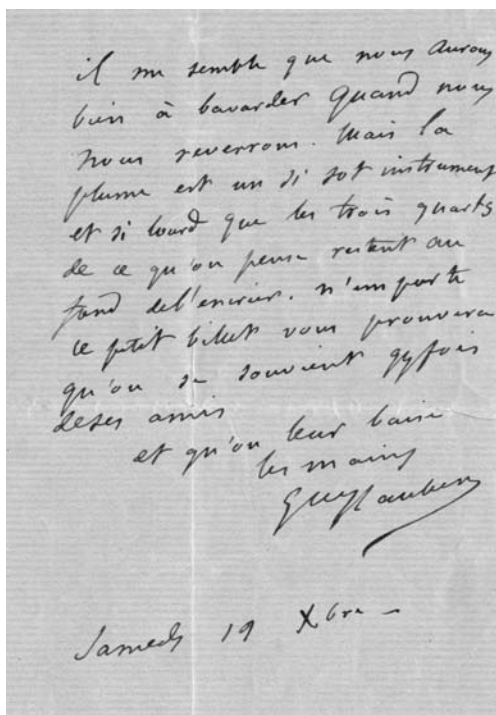 il me semble que nous aurons
bien à bavarder quand nous
nous reverrons. Mais la
plume est un si sot instrument
et si lourd que les trois quarts
de ce qu'on pense restent au
fond de l'encrier. n'importe
ce petit billet vous prouvera
qu'on se souvient qqfois
de ses amis
et qu'on leur baise
les mains
Gve Flaubert
Samedi 19 Xbre